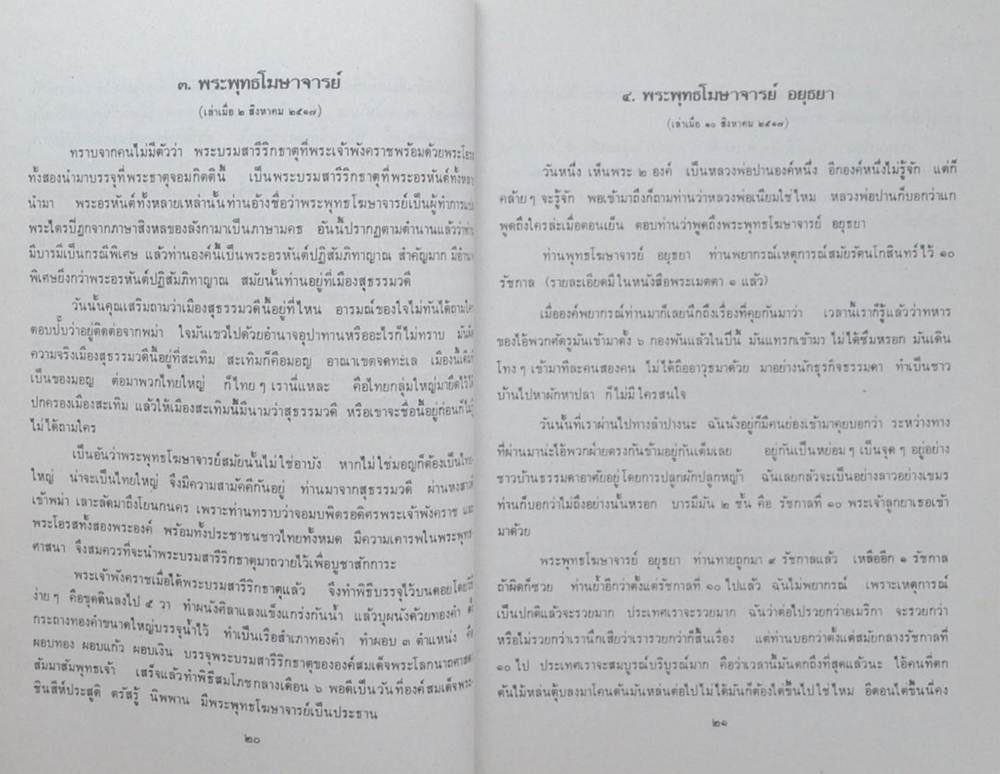 ๓. พระพุทธโฆษาจารย์
(เล่าเมื่อ ๒ สิงหาคม ๒๕๑๗)
ทราบจากคนไม่มีตัวว่า พระบรมสารีริกธาตุที่พระเจ้าพังคราชพร้อมด้วยพระโอรส
ทั้งสองนำมาบรรจุที่พระธาตุจอมกิตตินี้ เป็นพระบรมสารีริกธาตุที่พระอรหันต์ทั้งหลาย
นำมา พระอรหันต์ทั้งหลายเหล่านั้นท่านอ้างชื่อว่าพระพุทธโฆษาจารย์เป็นผู้ทำการแปล
พระไตรปิฎกจากภาษาสิงหลของลังกามาเป็นภาษามคธ อันนี้ปรากฏตามตำนานแล้วว่าท่าน
มีบารมีเป็นกรณีพิเศษ แล้วท่านองค์นี้เป็นพระอรหันต์ปฏิสัมภิทาญาณ สำคัญมาก มีอำนาจ
พิเศษยิ่งกว่าพระอรหันต์ปฏิสัมภิทาญาณ สมัยนั้นท่านอยู่ที่เมืองสุธรรมวดี
วันนั้นคุณเสริมถามว่าเมืองสุธรรมวดีนี้อยู่ที่ไหน อารมณ์ของใจไม่ทันได้ถามใคร
ตอบปั๊บว่าอยู่ติดต่อจากพม่า ใจมันเขวไปด้วยอำนาจอุปาทานหรืออะไรก็ไม่ทราบ
ความจริงเมืองสุธรรมวดีนี้อยู่ที่สะเทิม สะเทิมก็คือมอญ อาณาเขตจดทะเล เมืองนี้เดิม
เป็นของมอญ ต่อมาพวกไทยใหญ่ ก็ไทยๆ เรานี่แหละ คือไทยกลุ่มใหญ่มายึดไว้ให้
ปกครองเมืองสะเทิม แล้วให้เมืองสะเทิมนี้มีนามว่าสุธรรมวดี หรือเขาจะชื่อนี้อยู่ก่อนก็ไม่รู้
ไม่ได้ถามใคร
เป็นอันว่าพระพุทธโฆษาจารย์สมัยนั้นไม่ใช่อาบัง หากไม่ใช่มอญก็ต้องเป็นไทย
ใหญ่ น่าจะเป็นไทยใหญ่ จึงมีความสามัคคีกันอยู่ ท่านมาจากสุธรรมวดี ผ่านหงสาวดี
เข้าพม่า เลาะลัดมาถึงโยนกนคร เพราะท่านทราบว่าจอมบพิตรอดิศรพระเจ้าพังคราช และ
พระโอรสทั้งสองพระองค์ พร้อมทั้งประชาชนชาวไทยทั้งหมด มีความเคารพในพระพุทธ
ศาสนา จึงสมควรที่จะนำพระบรมสารีริกธาตุมาถวายไว้เพื่อบูชาสักการะ
พระเจ้าพังคราชเมื่อได้พระบรมสารีริกธาตุแล้ว จึงทำพิธีบรรจุไว้บนดอยโดยวิธี
ง่ายๆ คือขุดดินลงไป ๕ วา ทำผนังศิลาแลงแข็งแกร่งกันน้ำ แล้วบุผนังด้วยทองคำ ตั้ง
กระถางทองคำขนาดใหญ่บรรจุน้ำไว้ ทำเป็นเรือสำเภาทองคำ ทำผอบ ๓ ตำแหน่ง คือ
ผอบทอง ผอบแก้ว ผอบเงิน บรรจุพระบรมสารีริกธาตุขององค์สมเด็จพระโลกนาถศาสดา
สัมมาสัมพุทธเจ้า เสร็จแล้วทำพิธีสมโภชกลางเดือน ๖ พอดีเป็นวันที่องค์สมเด็จพระ
ชินสีห์ประสูติ ตรัสรู้ นิพพาน มีพระพุทธโฆษาจารย์เป็นประธาน
๒๐
๔. พระพุทธโฆษาจารย์ อยุธยา
(เล่าเมื่อ ๑๐ สิงหาคม ๒๕๑๗)
วันหนึ่ง เห็นพระ ๒ องค์ เป็นหลวงพ่อปานองค์หนึ่ง อีกองค์หนึ่งไม่รู้จัก แต่ก็
คล้ายๆ จะรู้จัก พอเข้ามาถึงก็ถามท่านว่าหลวงพ่อเนียมใช่ไหม หลวงพ่อปานก็บอกว่าแก
พูดถึงใครล่ะเมื่อตอนเย็น ตอบท่านว่าพูดถึงพระพุทธโฆษาจารย์ อยุธยา
ท่านพุทธโฆษาจารย์ อยุธยา ท่านพยากรณ์เหตุการณ์สมัยรัตนโกสินทร์ไว้ ๑๐
รัชกาล (รายละเอียดมีในหนังสือพระเมตตา ๑ แล้ว)
เมื่อองค์พยากรณ์ท่านมาก็เลยนึกถึงเรื่องที่คุยกันมาว่า เวลานี้เราก็รู้แล้วว่าทหาร
ของไอ้พวกศัตรูมันเข้ามาตั้ง ๖ กองพันแล้วในปีนี้ มันแทรกเข้ามา ไม่ได้ซึมหรอก มันเดิน
โทงๆ เข้ามาทีละคนสองคน ไม่ได้ถืออาวุธมาด้วย มาอย่างนักธุรกิจธรรมดา ทำเป็นชาว
บ้านไปหาผักหาปลา ก็ไม่มีใครสนใจ
วันนั้นที่เราผ่านไปทางลำปางนะ ฉันนั่งอยู่ก็มีคนย่องเข้ามาคุยบอกว่า ระหว่างทาง
ที่ผ่านมาน่ะไอ้พวกฝ่ายตรงกันข้ามอยู่กันเต็มเลย อยู่กันเป็นหย่อมๆ เป็นจุดๆ อยู่อย่าง
ชาวบ้านธรรมดาอาศัยอยู่โดยการปลูกผักปลูกหญ้า ฉันเลยกลัวจะเป็นอย่างลาวอย่างเขมร
ท่านก็บอกว่าไม่ถึงอย่างนั้นหรอก บารมีมัน ๒ ชั้น คือ รัชกาลที่ ๑๐ พระเจ้าลูกยาเธอเข้า
มาด้วย
พระพุทธโฆษาจารย์ อยุธยา ท่านทายถูกมา ๙ รัชกาลแล้ว เหลืออีก ๑ รัชกาล
ถ้าผิดก็ซวย ท่านย้ำอีกว่าตั้งแต่รัชกาลที่ ๑๐ ไปแล้ว ฉันไม่พยากรณ์ เพราะเหตุการณ์
เป็นปกติแล้วจะรวยมาก ประเทศเราจะรวยมาก ฉันว่าต่อไปรวยกว่าอเมริกา จะรวยกว่า
หรือไม่รวยกว่าเรานึกเสียว่าเรารวยกว่าก็สิ้นเรื่อง แต่ท่านบอกว่าตั้งแต่สมัยกลางรัชกาลที่
๑๐ ไป ประเทศเราจะสมบูรณ์บริบูรณ์มาก คือว่าเวลานี้มันตกถึงที่สุดแล้วนะ ไอ้คนที่ตก
ต้นไม้หล่นตุ้บลงมาโคนต้นมันหล่นต่อไปไม่ได้มันก็ต้องไต่ขึ้นไปใช่ไหม อีตอนไต่ขึ้นนี่คง
๒๑